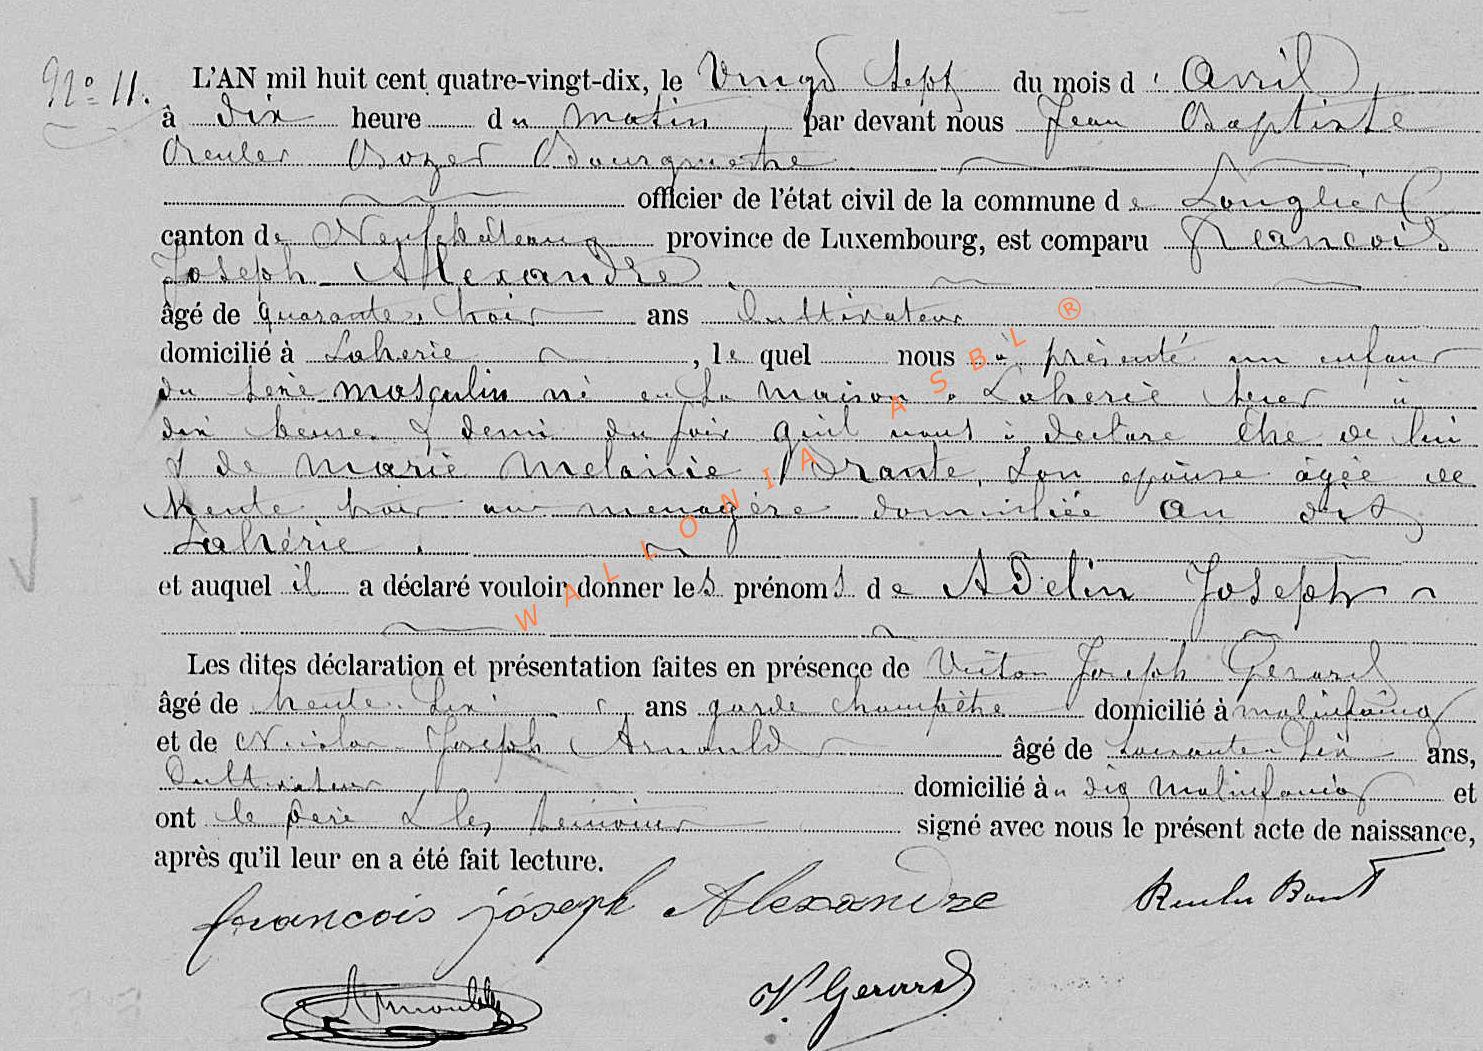 N° 11.
L'AN mil huit cent quatre-vingt-dix, le Vingt Sept du mois d' Avril
à dix heure du matin, par devant nous Jean Baptiste
Reuler Bourgmestre
officier de l'état civil de la commune de Longlier
canton de Neufchâteau province de Luxembourg, est comparu Francois
Joseph Alexandre,
âgé de quarante trois ans Cultivateur
domicilié à Laherie, le quel nous à présenté un enfant
du sexe masculin né en sa maison à Laherie hier à
dix heures & demi du soir qu'il nous à declare être de lui
& de marie Melanie son épouse âgée de
trente trois ans menagère domiciliée au dit
Lahérie.
et auquel il a déclaré vouloir donner les prénoms de Adelin Joseph
Les dites déclaration et présentation faites en présence de Victor Joseph Gerard
âgé de trente six ans garde champêtre domicilié à malinfaing
et de Nicolas Joseph Arnould âgé de soixante six ans,
Cultivateur domicilié au dit Malinfaing et
ont le père & les témoins signé avec nous le présent acte de naissance,
après qu'il leur en a été fait lecture.
francois joseph Alexandre
Arnould
V. Gerard
WALLONIA ASBL ®